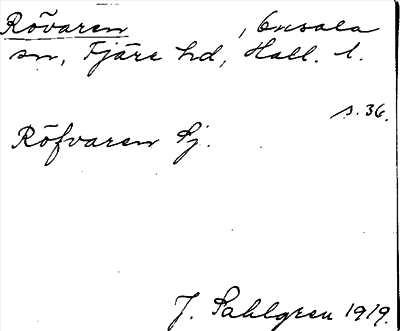 Rövaren , Onsala
sn, Fjäre hd, Hall. l.
s. 36.
Röfvaren Sj.
J. Sahlgren 1919.